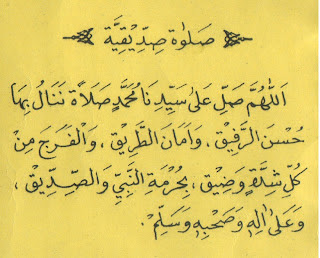 صَلَوٰة صِدِّيْقِيَّة
اَللّٰهُمَّ صَلِّ عَلٰى سَيِّدِنَا مُحَمَّدٍ صَلَاةً نَنَالُ بِهَا
حُسْنَ الرَّفِيْقِ ، وَاَمَانَ الطَّرِيْقِ ، وَالْفَرَجَ مِنْ
كُلِّ شِدَّةٍ وَضِيْقٍ ، بِحُرْمَةِ النَّبِيِّ وَالصِّدِّيْقِ ،
وَعَلٰى اٰلِهٖ وَصَحْبِهٖ وَسَلِّمْ .